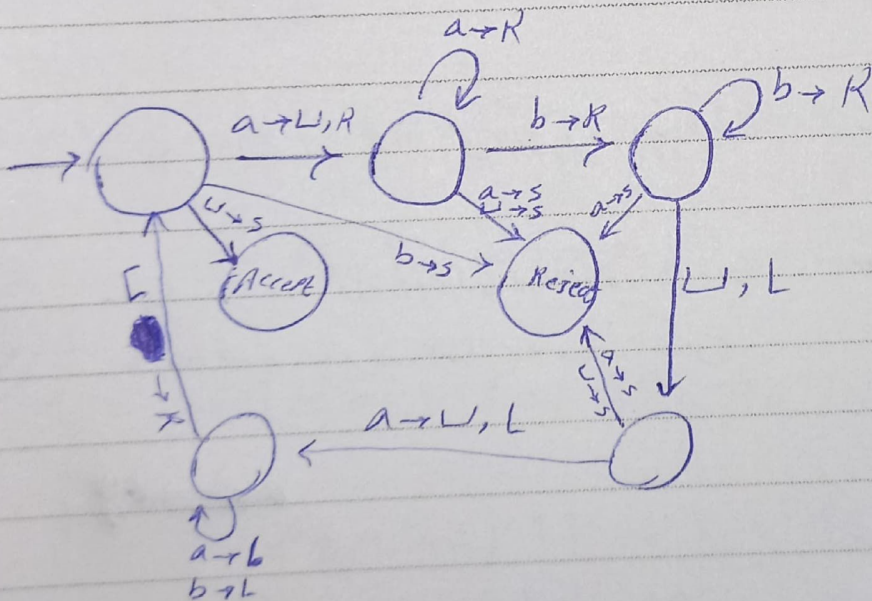 a→R
a→⊔,R
b→R
b→R
a→s
⊔→s
a→s
⊔→s
b→s
Accept
Reject
⊔,L
a→s
⊔→s
a→⊔,L
a→L
b→L